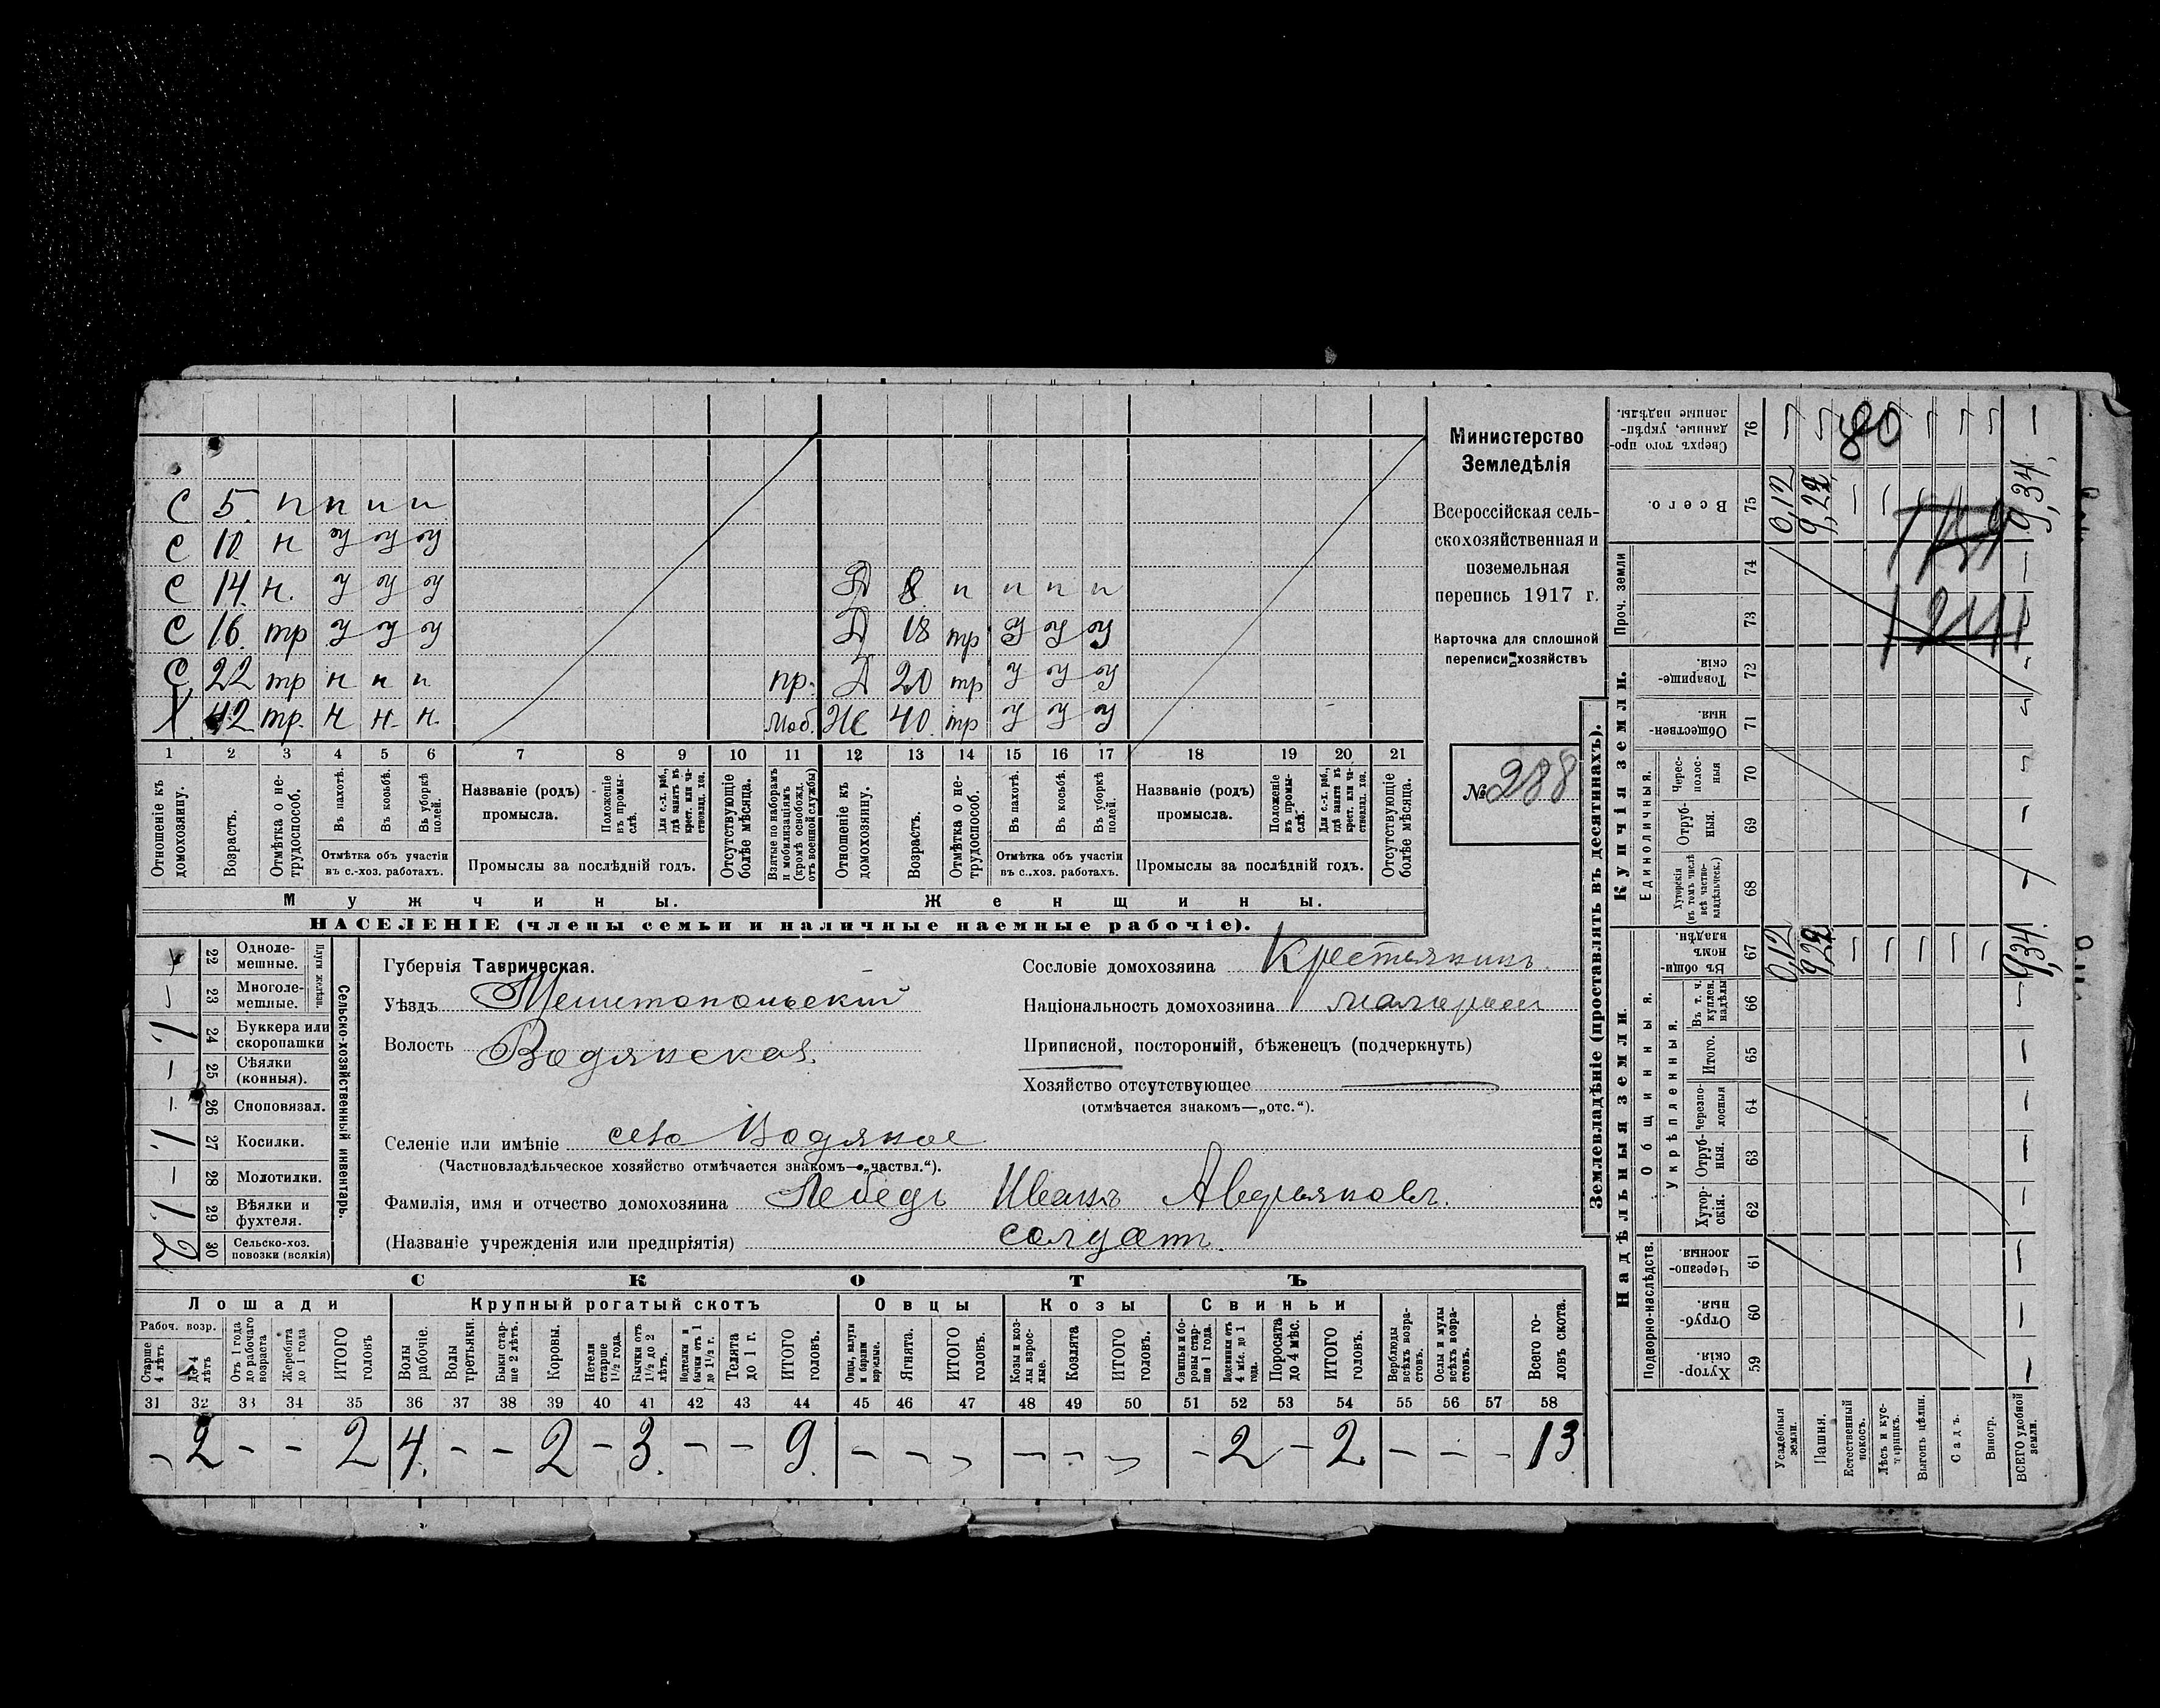 С 5. п п п п
С 10 н у у у
С 14 н. у у у Д 8 п п п п
С 16. тр у у у Д 18 тр у у у
С 22 тр н н н пр. Д 20 тр у у у
Х. 42 тр. н н. н. моб. Ж 40. тр у у у
1 2 3 4 5 6 7 8 9 10 11 12 13 14 15 16 17 18 19 20 21
Отношеніе къ домохозяину.
Возрастъ.
Отмѣтка о нетрудоспособ.
Въ пахотѣ.
Въ косьбѣ.
Въ уборкѣ полей.
Отмѣтка объ участіи въ с.-хоз. работахъ.
Названіе (родъ) промысла.
Положеніе въ промыслѣ.
Для с.-х. раб., гдѣ занятъ въ крест. или частновлад. хоз.
Промыслы за послѣдній годъ.
Отсутствующіе болѣе мѣсяца.
Взятые по наборамъ и мобилизаціямъ (кромѣ освобожд. отъ военной службы)
Отношеніе къ домохозяину.
Возрастъ.
Отмѣтка о нетрудоспособ.
Въ пахотѣ.
Въ косьбѣ.
Въ уборкѣ полей.
Отмѣтка объ участіи въ с..хоз. работахъ.
Названіе (родъ) промысла.
Положеніе въ промыслѣ.
Для с.-х. раб., гдѣ занята въ крест. или частновлад. хоз.
Промыслы за послѣдній годъ.
Отсутствующіе болѣе мѣсяца.
Мужчины. Женщины.
НАСЕЛЕНІЕ (члены семьи и наличные наемные рабочіе).
Министерство
Земледѣлія
Всероссійская сель-
скохозяйственная и
поземельная
перепись 1917 г.
Карточка для сплошной
переписи хозяйствъ
№ 288
Сельско-хозяйственный инвентарь.
Плуги желѣзн.
22 Одноле-мешные.
— 23 Многоле-мешные.
1. 24 Буккера или скоропашки
— 25 Сѣялки (конныя).
— 26 Сноповязал.
1. 27 Косилки.
— 28 Молотилки.
1. 29 Вѣялки и фухтеля.
2 30 Сельско-хоз. повозки (всякія)
Губернія Таврическая.
Уѣздъ Мелитопольский
Волость Водянская.
Селеніе или имѣніе село Водяное
(Частновладѣльческое хозяйство отмѣчается знакомъ—„частвл.“).
Фамилія, имя и отчество домохозяина Лебедь Иванъ Авдрьяновъ.
(Названіе учрежденія или предпріятія) солдатъ.
Сословіе домохозяина Крестьянинъ.
Національность домохозяина малоросс
Приписной, посторонній, бѣженецъ (подчеркнуть)
Хозяйство отсутствующее —
(отмѣчается знакомъ—„отс.“).
СКОТЪ
Лошади Крупный рогатый скотъ Овцы Козы Свиньи
Рабоч. возр.
Старше 4 лѣтъ
До 4 лѣтъ
Отъ 1 года до рабочаго возраста
Жеребята до 1 года
ИТОГО головъ
Волы рабочіе.
Волы третьяки.
Быки старше 2 лѣтъ.
Коровы.
Нетели старше 1½ года.
Бычки отъ 1½ до 2 лѣтъ.
Нетелки и бычки отъ 1 до 1½ г.
Телята до 1 г.
ИТОГО головъ.
Овцы, валухи и бараны взрослые.
Ягнята.
ИТОГО головъ.
Козы и козлы взрослые.
Козлята
ИТОГО головъ.
Свиньи и боровы старше 1 года.
Подсвинки отъ 4 мѣс. до 1 года.
Поросята до 4 мѣс.
ИТОГО головъ.
Верблюды всѣхъ возрастовъ.
Ослы и мулы всѣхъ возрастовъ.
Всего головъ скота.
31 32 33 34 35 36 37 38 39 40 41 42 43 44 45 46 47 48 49 50 51 52 53 54 55 56 57 58
– 2 – – 2 4. – – 2 – 3. – – 9. – – – – – – – 2 – 2. – – – 13
Землевладѣніе (проставлять въ десятинахъ).
Надѣльныя земли. Купчія земли. Проч. земли
Подворно-наслѣдств.
Общинныя.
Укрѣпленныя.
Единоличныя.
Хуторскія. 59
Отрубныя. 60
Черезполосныя 61
Хуторскія. 62
Отрубныя. 63
Черезполосныя 64
Итого. 65
Въ т. ч. куплен. надѣлы 66
Въ общинномъ владѣн. 67 0,12 9,22 — — — — — 9,34.
Хуторскія (въ томъ числѣ всѣ частновладѣльческ.) 68
Отрубныя. 69
Чресполосныя 70
Общественныя 71
Товарищескія. 72
73
74
Всего. 75 0,12 9,22 — — 9,34.
Сверхъ того проданные, укрѣпленные надѣлы. 76
80
Усадебныя земли.
Пашня.
Естественный покосъ.
Лѣсъ и кустарникъ.
Выгонъ цѣлин.
Садъ.
Виногр.
ВСЕГО удобной земли.